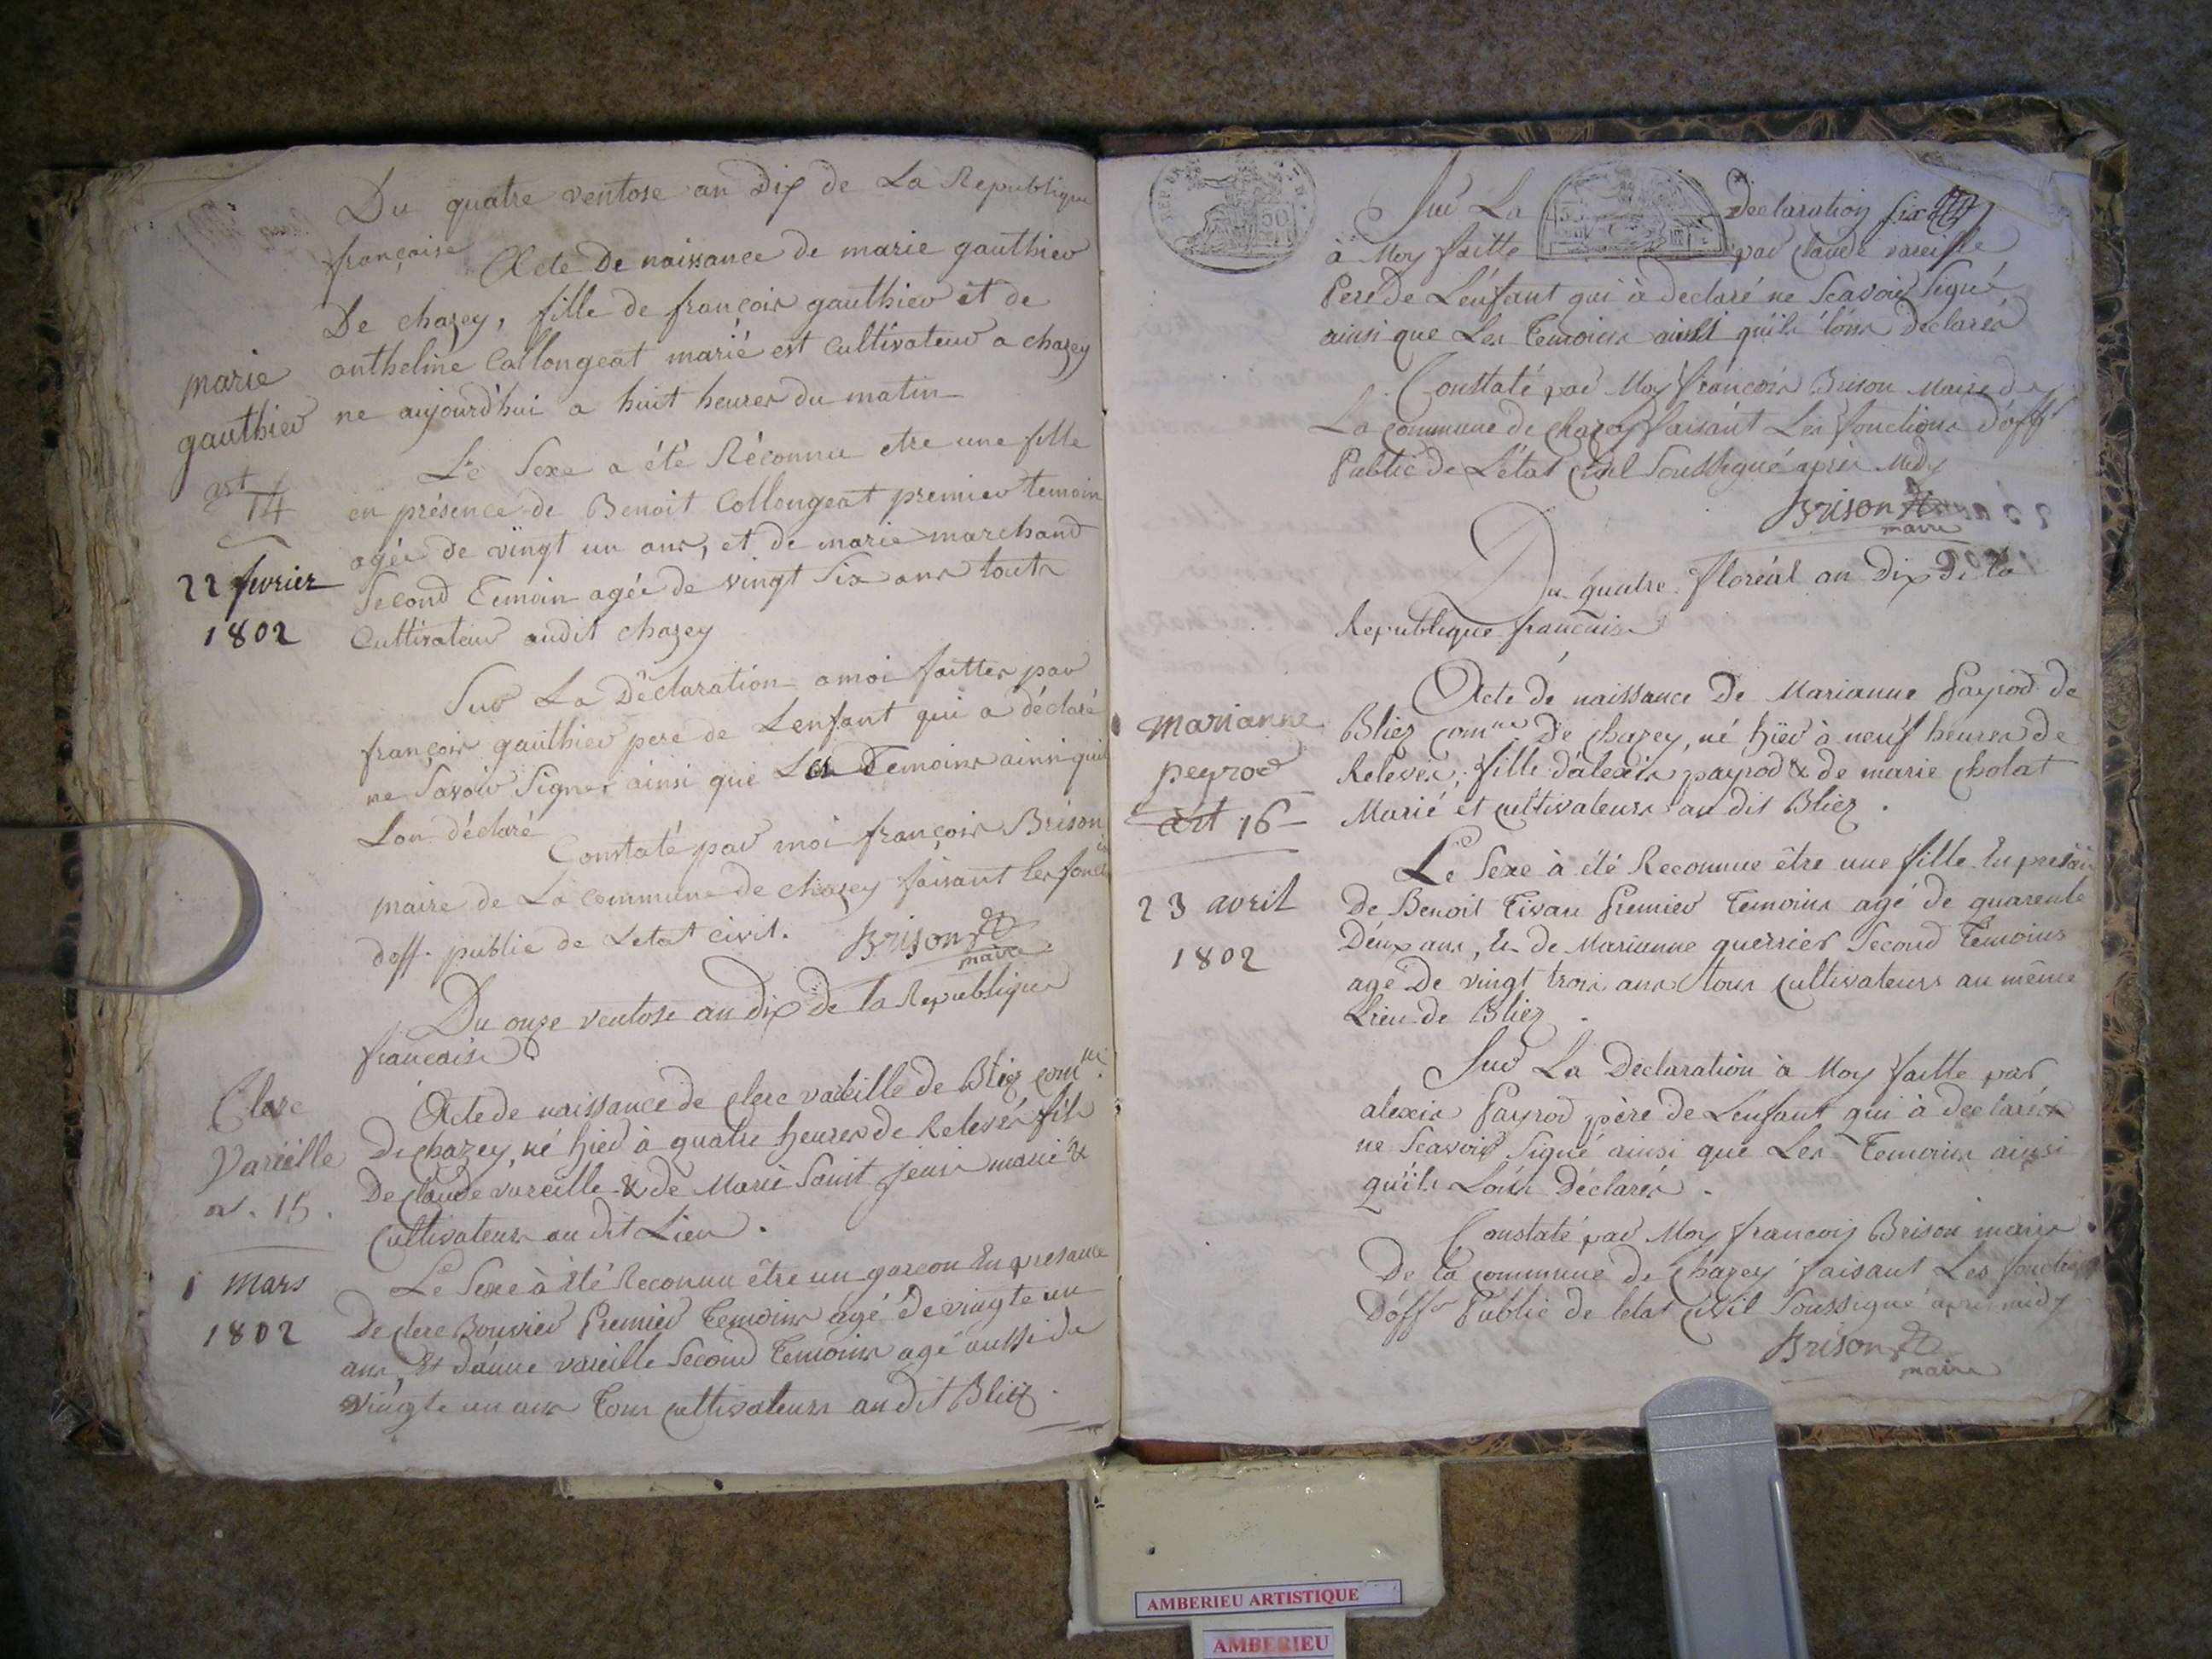 Du quatre ventose an Dix de La Republique
française
Acte De naissance de marie gauthier
De chazey, fille de françois gauthier et de
antheline Collongeat marié est Cultivateur a chazey
ne aujourd'hui a huit heures du matin
marie
gauthier
art
14
22 fevrier
1802
Le Sexe a été Réconnu etre une fille
en présence de Benoit Collongeat premier temoin
agée de vingt un ans, et de marie marchand
Second Temoin agée de vingt Six ans touts
Cultivateur audit chazey
Sur La Déclaration a moi faittes par
françois gauthier pere de Lenfant qui a déclaré
ne Savoir Signer ainsi que Les Temoins ainsi quis
Lon déclaré
Constaté par moi françois Brison
maire de La commune de chazey faisant les fonct
doff. public de Letat civil. Brison
maire
Du onze ventose an dix de la Republique
francaise
Clere
Vareille
a. 15.
1 Mars
1802
Acte de naissance de clere vareille de Bliez com.ne
De chazey, né hier à quatre heures de Relevés fils
De Claude vareille & de Marie Saint jean marié &
Cultivateurs au dit Lieu.
Le Sexe à été Reconnu être un garcon En presance
De clere Bouvier Premier Temoins agé de vingte un
ans, Et d'anne vareille Second Temoins agé aussi de
vingte un ans Tous cultivateurs au dit Bliez.
Sur La Declaration
à Moy faitte par claude vareille
Pere de L'enfant qui à declaré ne Scavoir Signé
ainsi que Les Temoins ainsi quils l'ons declarés
Constaté par Moy françois Brison Maire de
La commune de chazey faisant Les fonctions d'offr
Public de L'état Civil Soussigné après Midy
Brison
maire
Du quatre floréal an Dix de la
Republique francaise
Marianne
peyrod
art 16
23 avril
1802
Acte de naissance De Marianne Payrod de
Bliez com.ne De chazey, né hier à neuf heures de
Relevés, fille d'alexis payrod & de marie cholat
Marié et cultivateurs au dit Bliez.
Le Sexe à été Reconnue être une fille En presan
De Benoit Tivan Premier Temoins agé de quarente
Deux ans, Et de Marianne guerrier Second Temoins
agé De vingt trois ans tous cultivateurs au même
Lieu de Bliez.
Sur La Declaration à Moy faitte par
alexis Payrod père de L'enfant qui à declaré
ne Scavoir Signé ainsi que Les Temoins ainsi
qu'ils L'ons Déclarés.
Constaté par Moy francois Brison maire
De la commune de chazey faisant Les fonctions
D'offr Public de letat Civil Soussigné apres midy
Brison
maire
AMBERIEU ARTISTIQUE
AMBERIEU